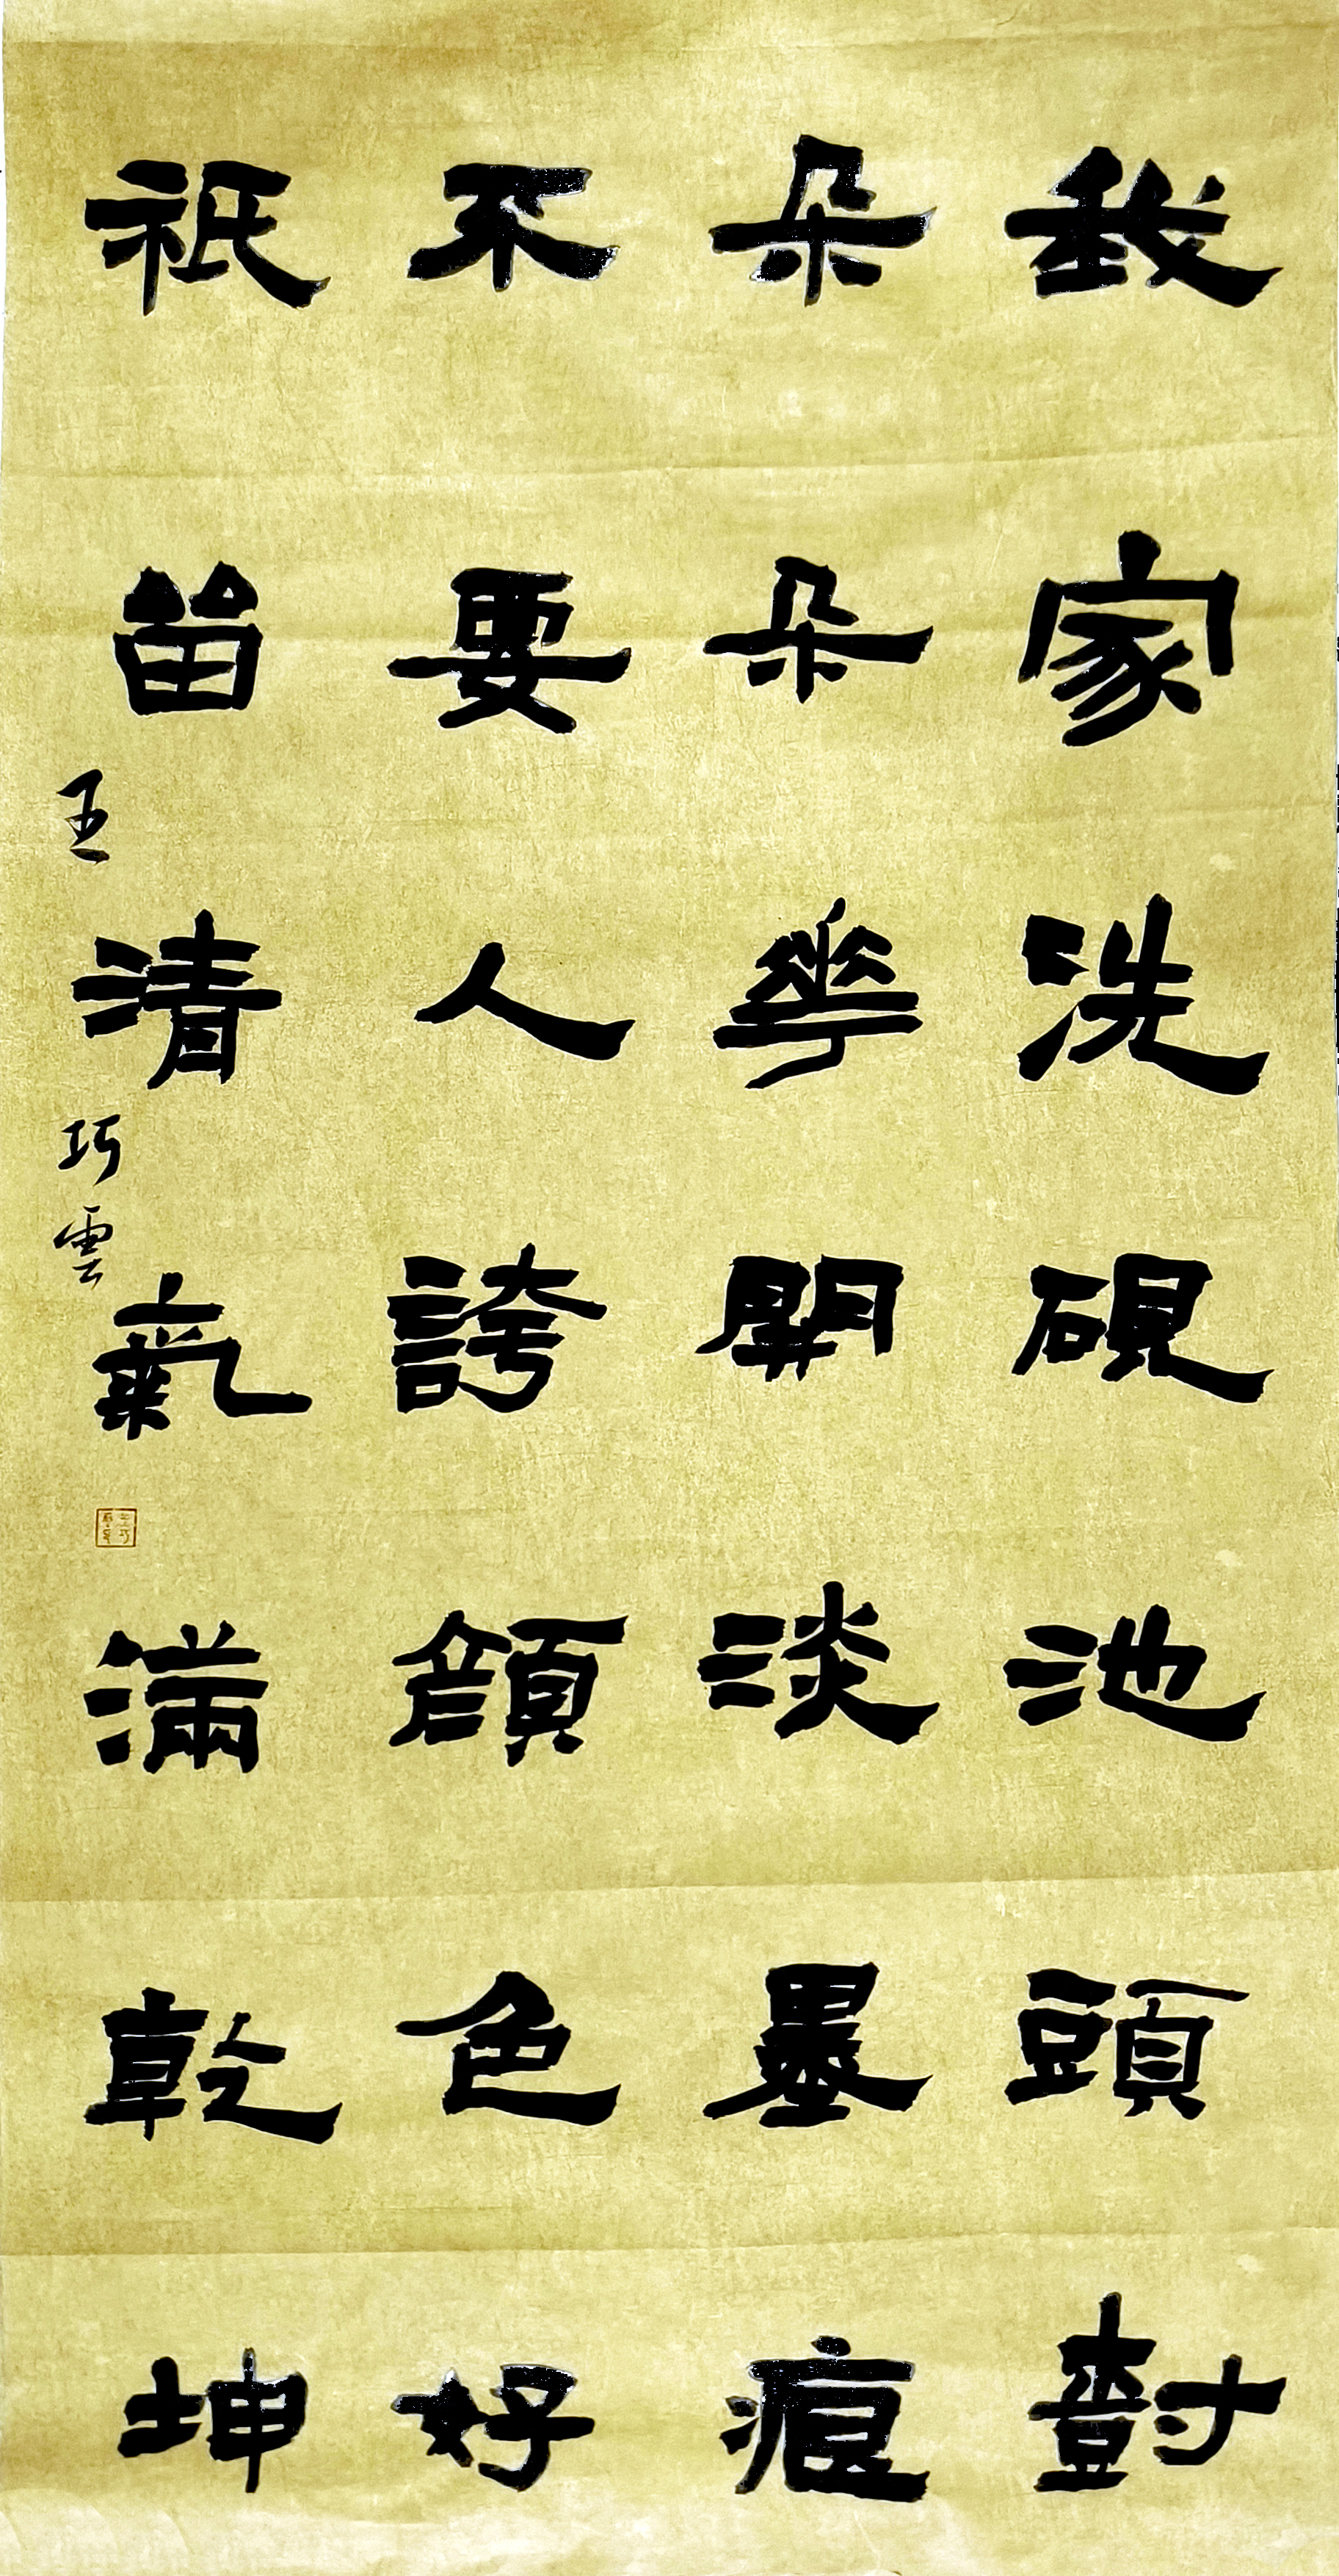 我家洗硯池頭樹
朵朵華開淡墨痕
不要人誇顏色好
祇留清氣滿乾坤
王巧雲